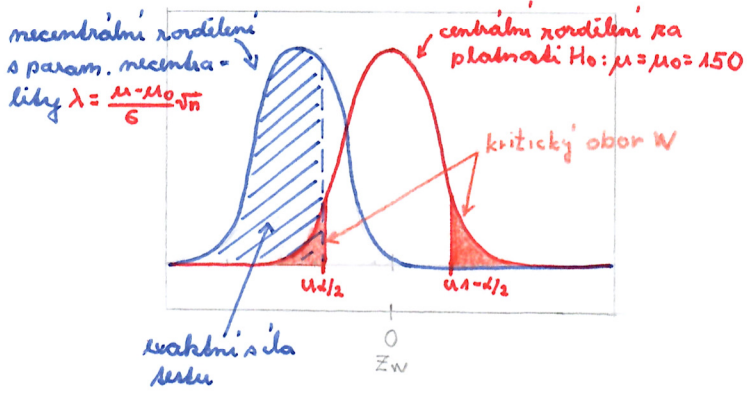 necentrální rozdělení
s param. necentra-
lity λ = μ-μ0/σ √n
centrální rozdělení za
platnosti H0: μ = μ0 = 150
kritický obor W
uα/2
u1-α/2
0
ZW
exaktní síla
testu